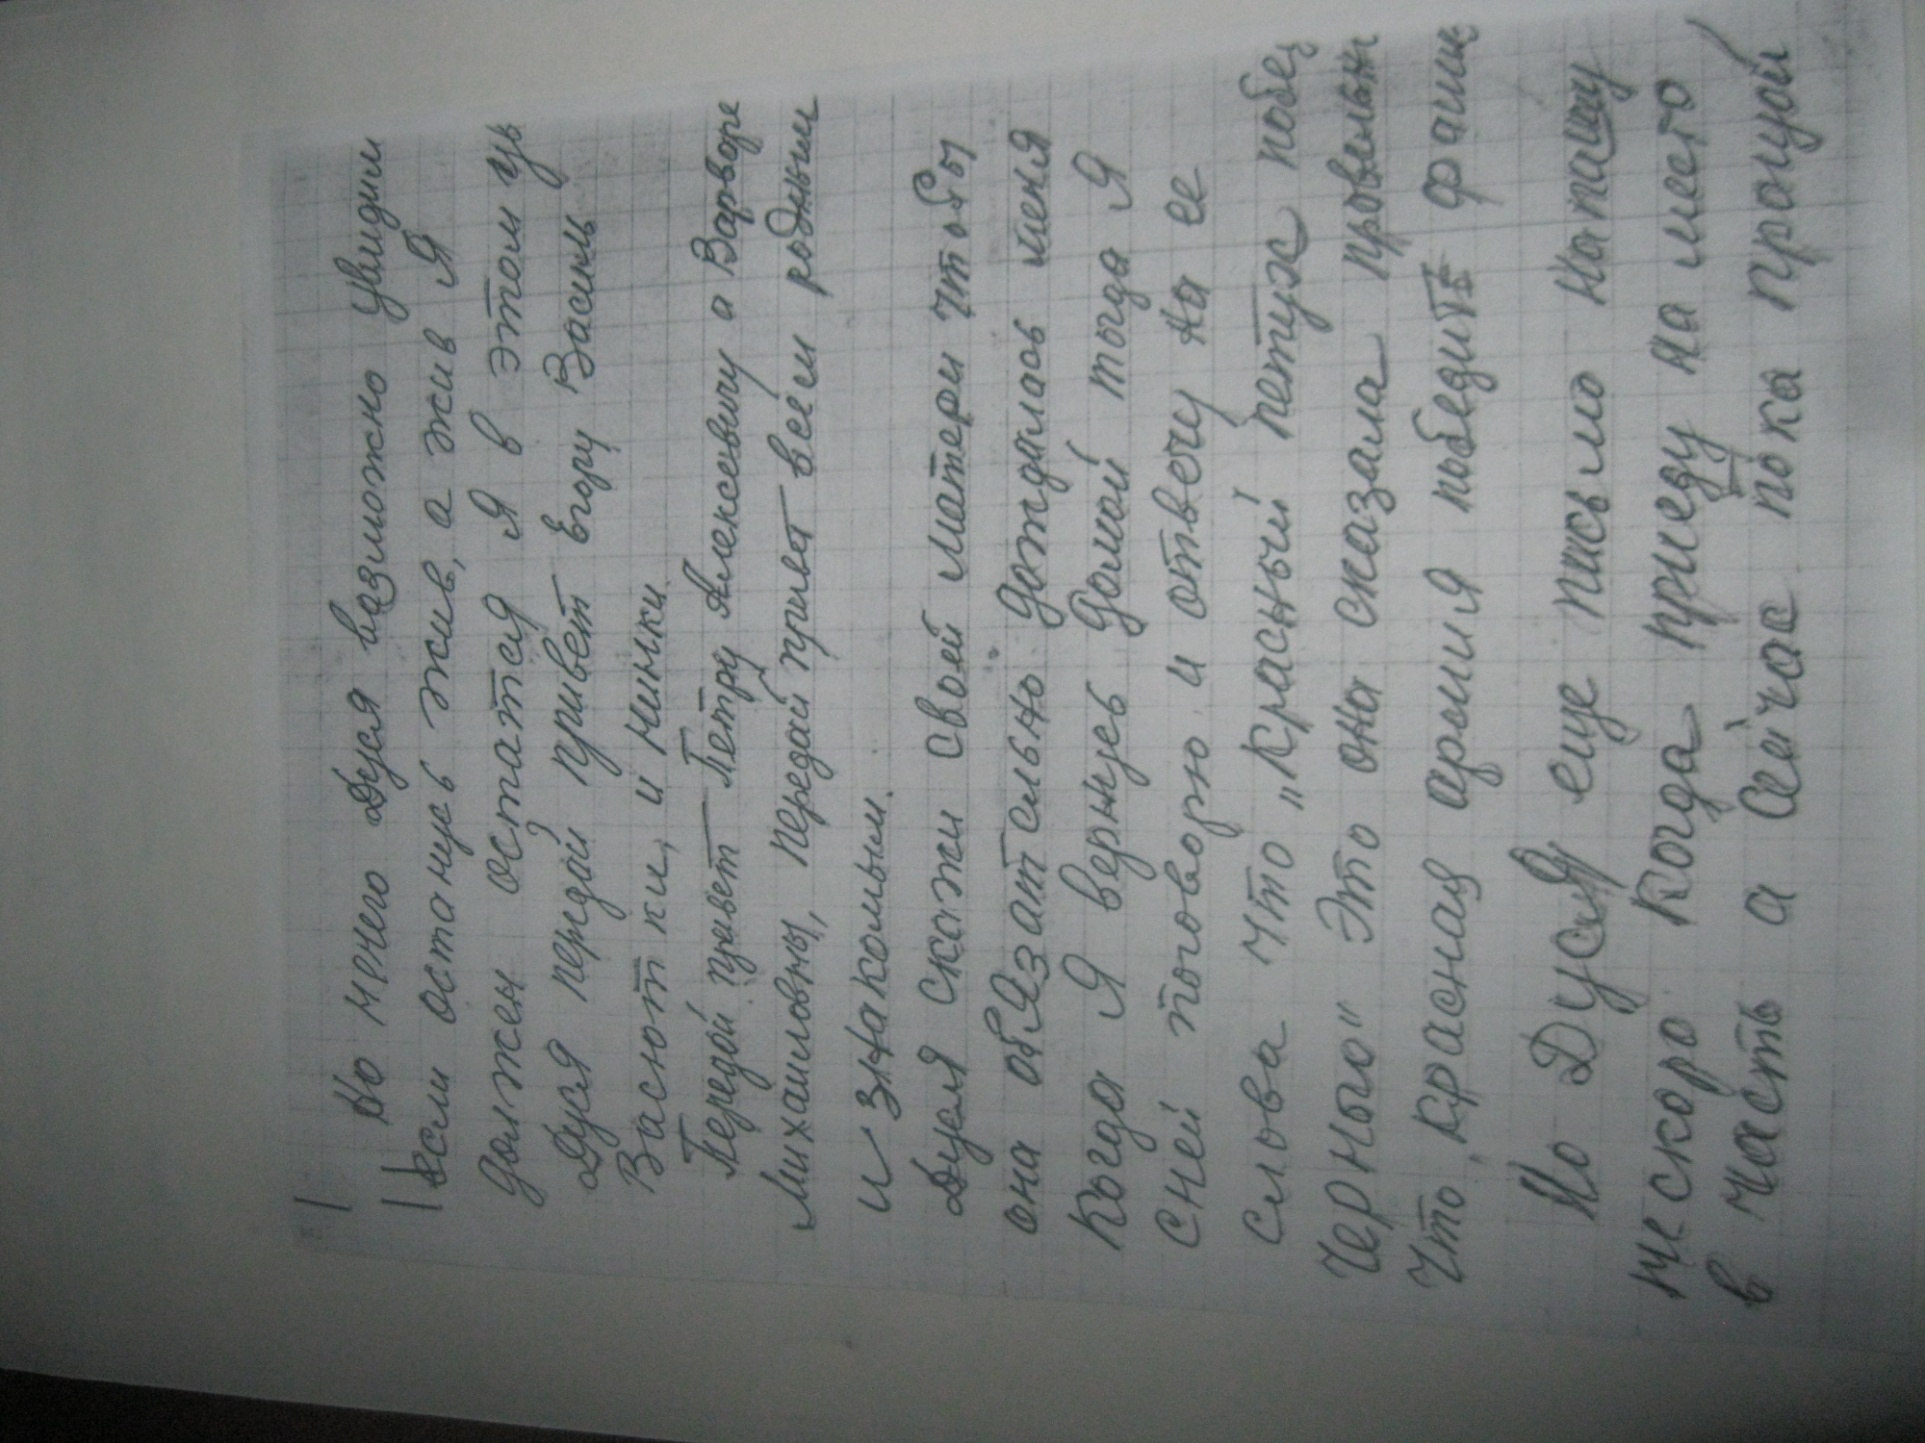 Но нечего Дуся вазможно увидим
если останусь жив, а жив Я
должен остатся Я в этом ув
Дуся передай привет Егору Василь
Васютки, и Нинки.
Передай привет Петру Алексеевичу а Варворе
Михаиловны, передай привет всем родным
и знакомым.
Дуся скажи своей матери чтобы
она обЯзательно дождалась меня
Когда Я вернусь домой тогда Я
сней поговорю и отвечу на ее
слова что "Красный петух побед
Черного" Это она сказала провельн
Что красная армия победить фаши
Но ДусЯ еще письмо напишу
не скоро когда приеду на место
в часть а сейчас пока прощай